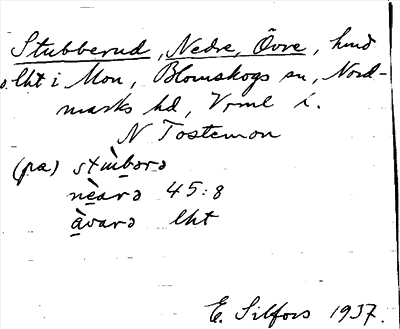 Stubberud, Nedre, Övre, hmd
o. lht i Mon, Blomskogs sn, Nord-
marks hd, Vrml l.
N Tostemon
(pa)
45:8
lht
E. Silfors 1937.